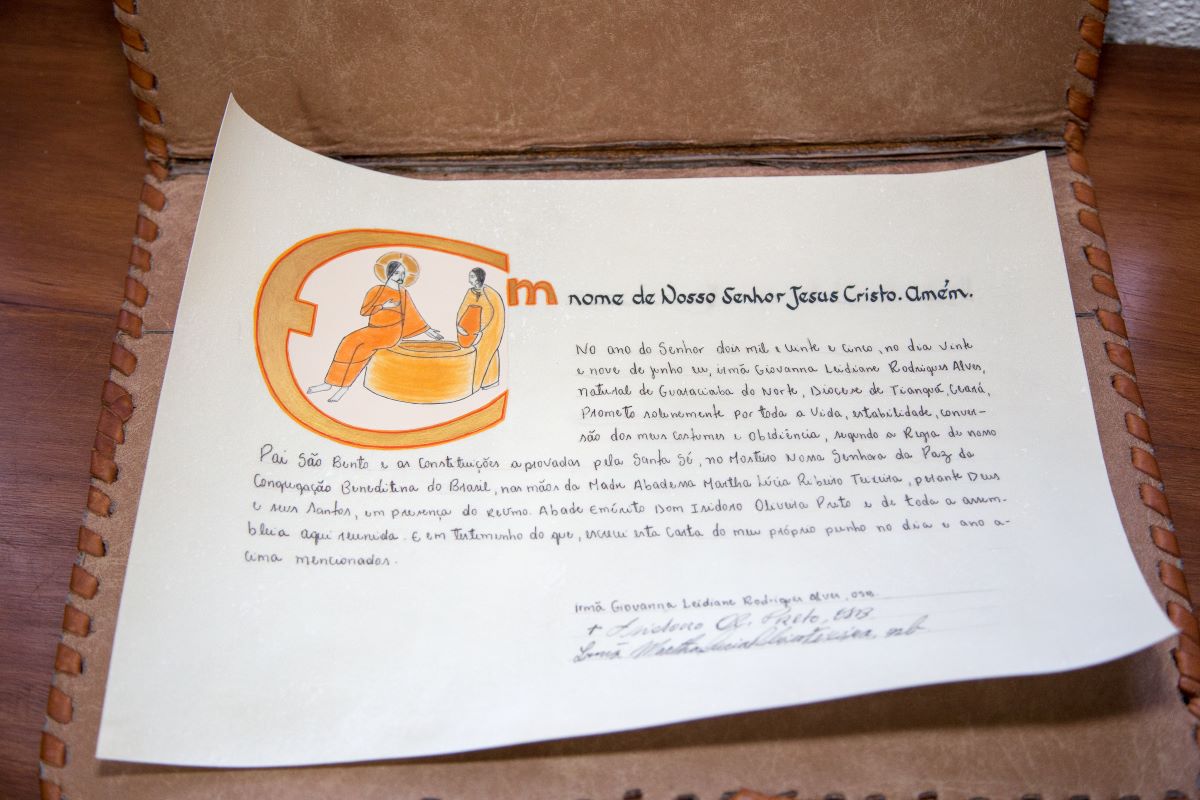 Em nome de Nosso Senhor Jesus Cristo. Amém.
No ano do Senhor dois mil e vinte e cinco, no dia vinte
e nove de junho eu, irmã Giovanna Leidiane Rodrigues Alves,
natural de Guaraciaba do Norte, Diocese de Tianguá, Ceará,
Prometo solenemente por toda a vida, estabilidade, conver-
são dos meus costumes e Obediência, segundo a Regra de nosso
Pai São Bento e as Constituições aprovadas pela Santa Sé, no Mosteiro Nossa Senhora da Paz da
Congregação Beneditina do Brasil, nas mãos da Madre Abadessa Martha Lúcia Ribeiro Teixeira, perante Deus
e seus Santos, em presença do Revmo. Abade Emérito Dom Isidoro Oliveira Preto e de toda a assem-
bleia aqui reunida. E em testemunho do que, escrevi esta Carta do meu próprio punho no dia e ano a-
cima mencionados.
irmã Giovanna Leidiane Rodrigues Alves, OSB
+ Isidoro Ol. Preto, OSB
Irmã Martha Lúcia